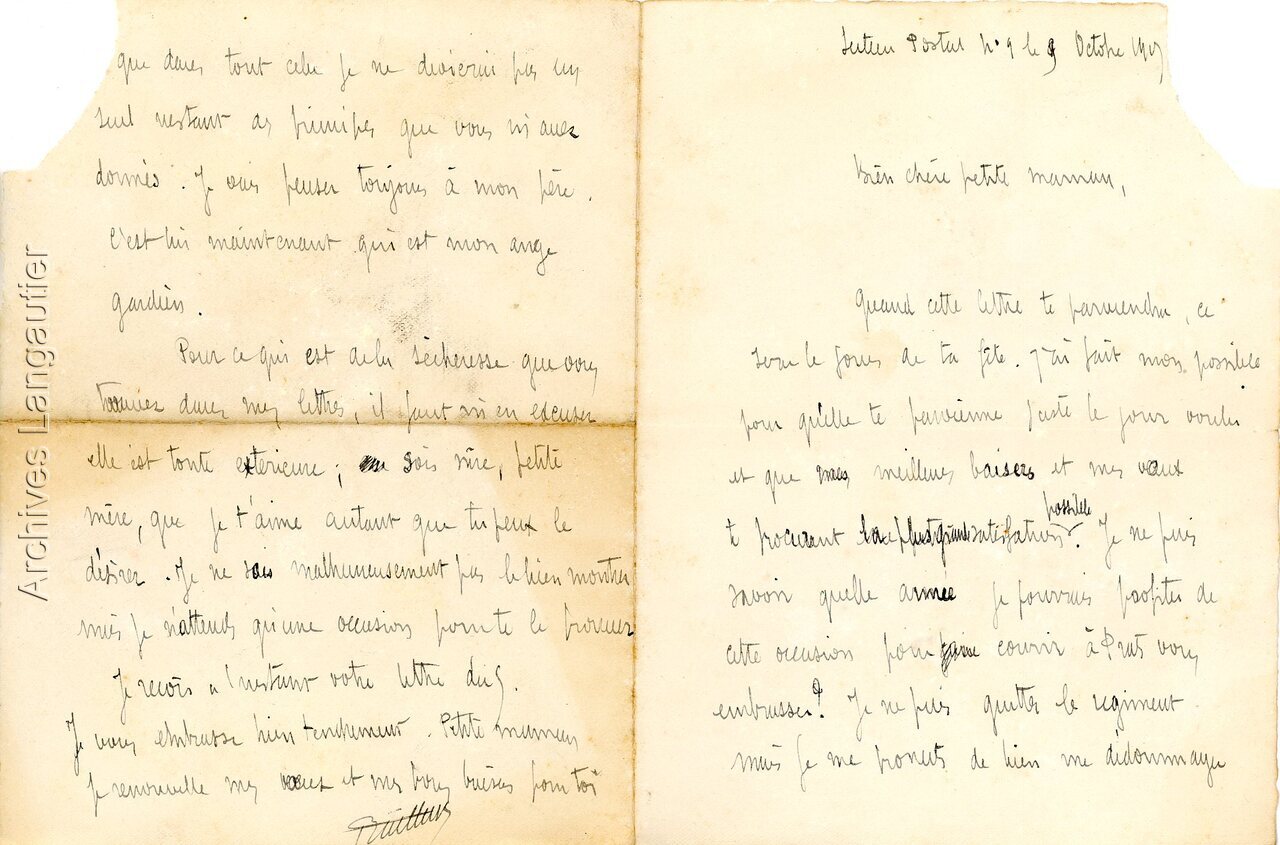 que dans tout cela je ne dévierai pas un
seul instant des principes que vous m'avez
donnés. Je vais penser toujours à mon père.
C'est lui maintenant qui est mon ange
gardien.
Pour ce qui est de la sécheresse que vous
trouvez dans mes lettres, il faut m'en excuser
elle est toute extérieure; sois sûre, petite
mère, que je t'aime autant que tu peux le
désirer. Je ne sais malheureusement pas le bien montrer
mais je n'attends qu'une occasion pour te le prouver
Je reçois à l'instant votre lettre du 5.
Je vous embrasse bien tendrement. Petite maman
je renouvelle mes vœux et mes bons baisers pour toi
Secteur Postal N° 9 le 9 Octobre
Bien chère petite maman,
Quand cette lettre te parviendra, ce
sera le jour de ta fête. J'ai fait mon possible
pour qu'elle te parvienne juste le jour voulu
et que mes meilleurs baisers et mes vœux
te procurent la plus grande satisfaction possible. Je ne puis
savoir quelle année je pourrais profiter de
cette occasion pour courir à Prats vous
embrasser? Je ne puis quitter le régiment
mais je me promets de bien me dédommager
Archives Langautier